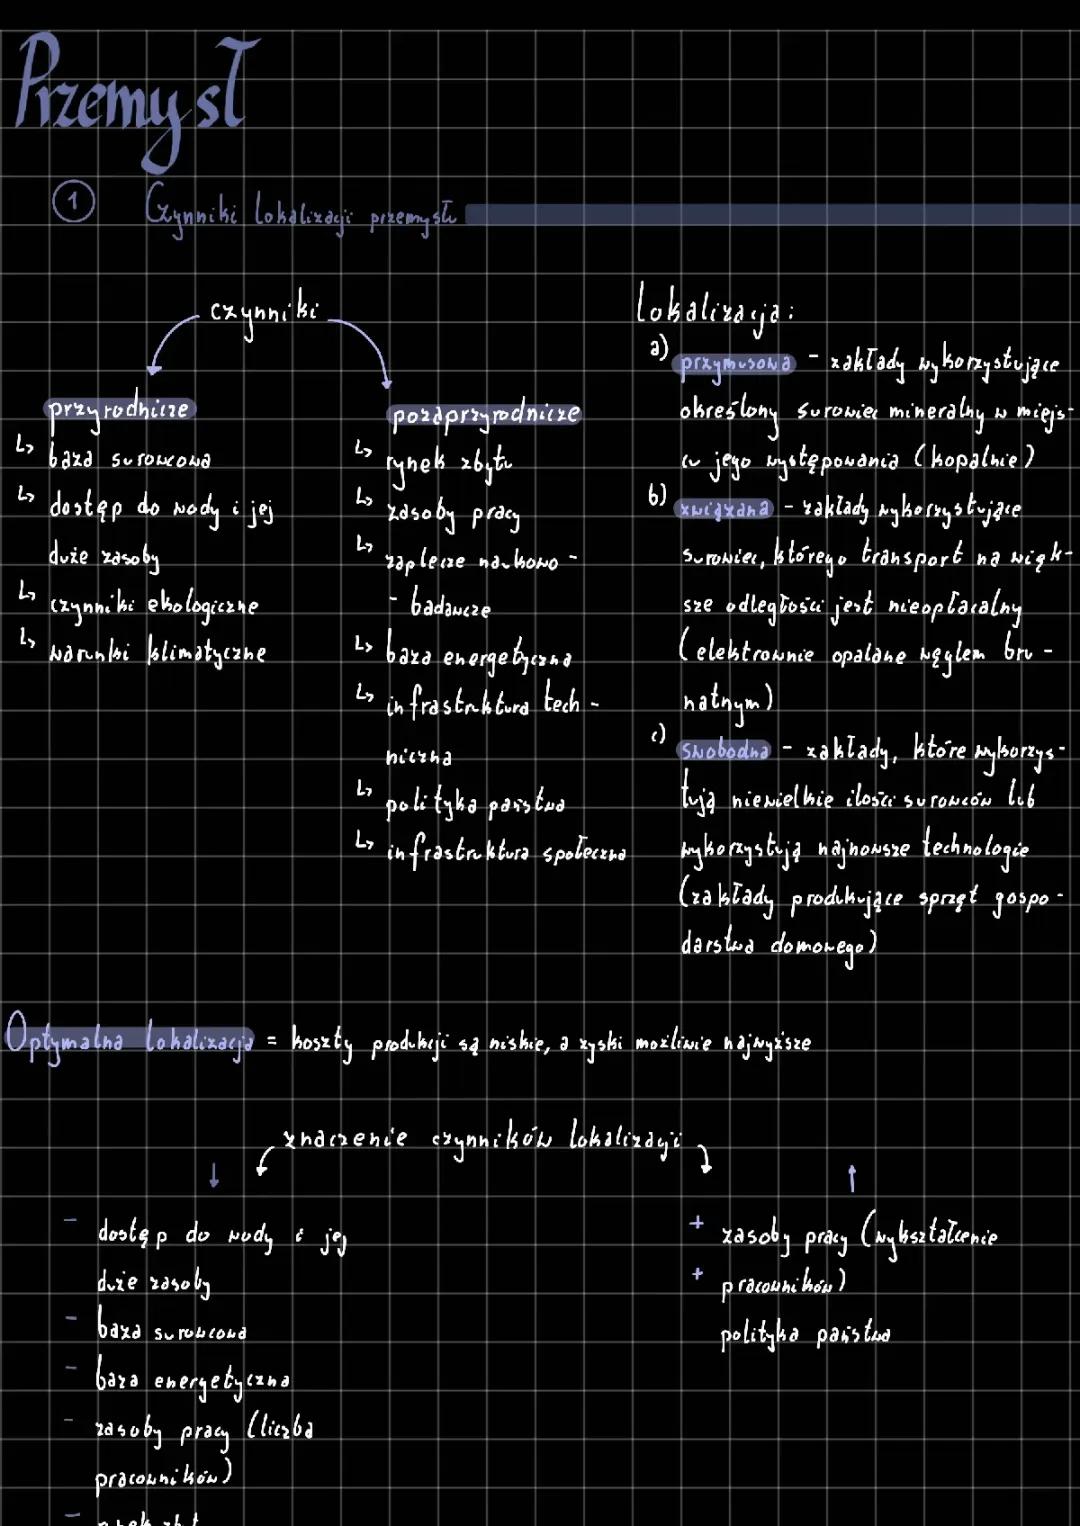 Przemysł
1 Czynniki lokalizacji przemysłu
czynniki
przyrodnicze
↳ baza surowcowa
↳ dostęp do wody i jej
duże zasoby
↳ czynniki ekologiczne
↳ warunki klimatyczne
pozaprzyrodnicze
↳ rynek zbytu
↳ zasoby pracy
↳ zaplecze naukowo -
- badawcze
↳ baza energetyczna
↳ infrastruktura tech -
niczna
↳ polityka państwa
↳ infrastruktura społeczna
Lokalizacja:
a) przymusowa - zakłady wykorzystujące
określony surowiec mineralny w miejs-
cu jego występowania (kopalnie)
b) związana - zakłady wykorzystujące
surowiec, którego transport na więk-
sze odległości jest nieopłacalny
(elektrownie opalane węglem bru -
natnym)
c) swobodna - zakłady, które wykorzys-
tują niewielkie ilości surowców lub
wykorzystują najnowsze technologie
(zakłady produkujące sprzęt gospo -
darstwa domowego)
Optymalna lokalizacja = koszty produkcji są niskie, a zyski możliwie najwyższe
znaczenie czynników lokalizacji
↓
- dostęp do wody i jej
duże zasoby
- baza surowcowa
- baza energetyczna
- zasoby pracy (liczba
pracowników)
- rynek zbytu
↑
+ zasoby pracy (wykształcenie
+ pracowników)
polityka państwa